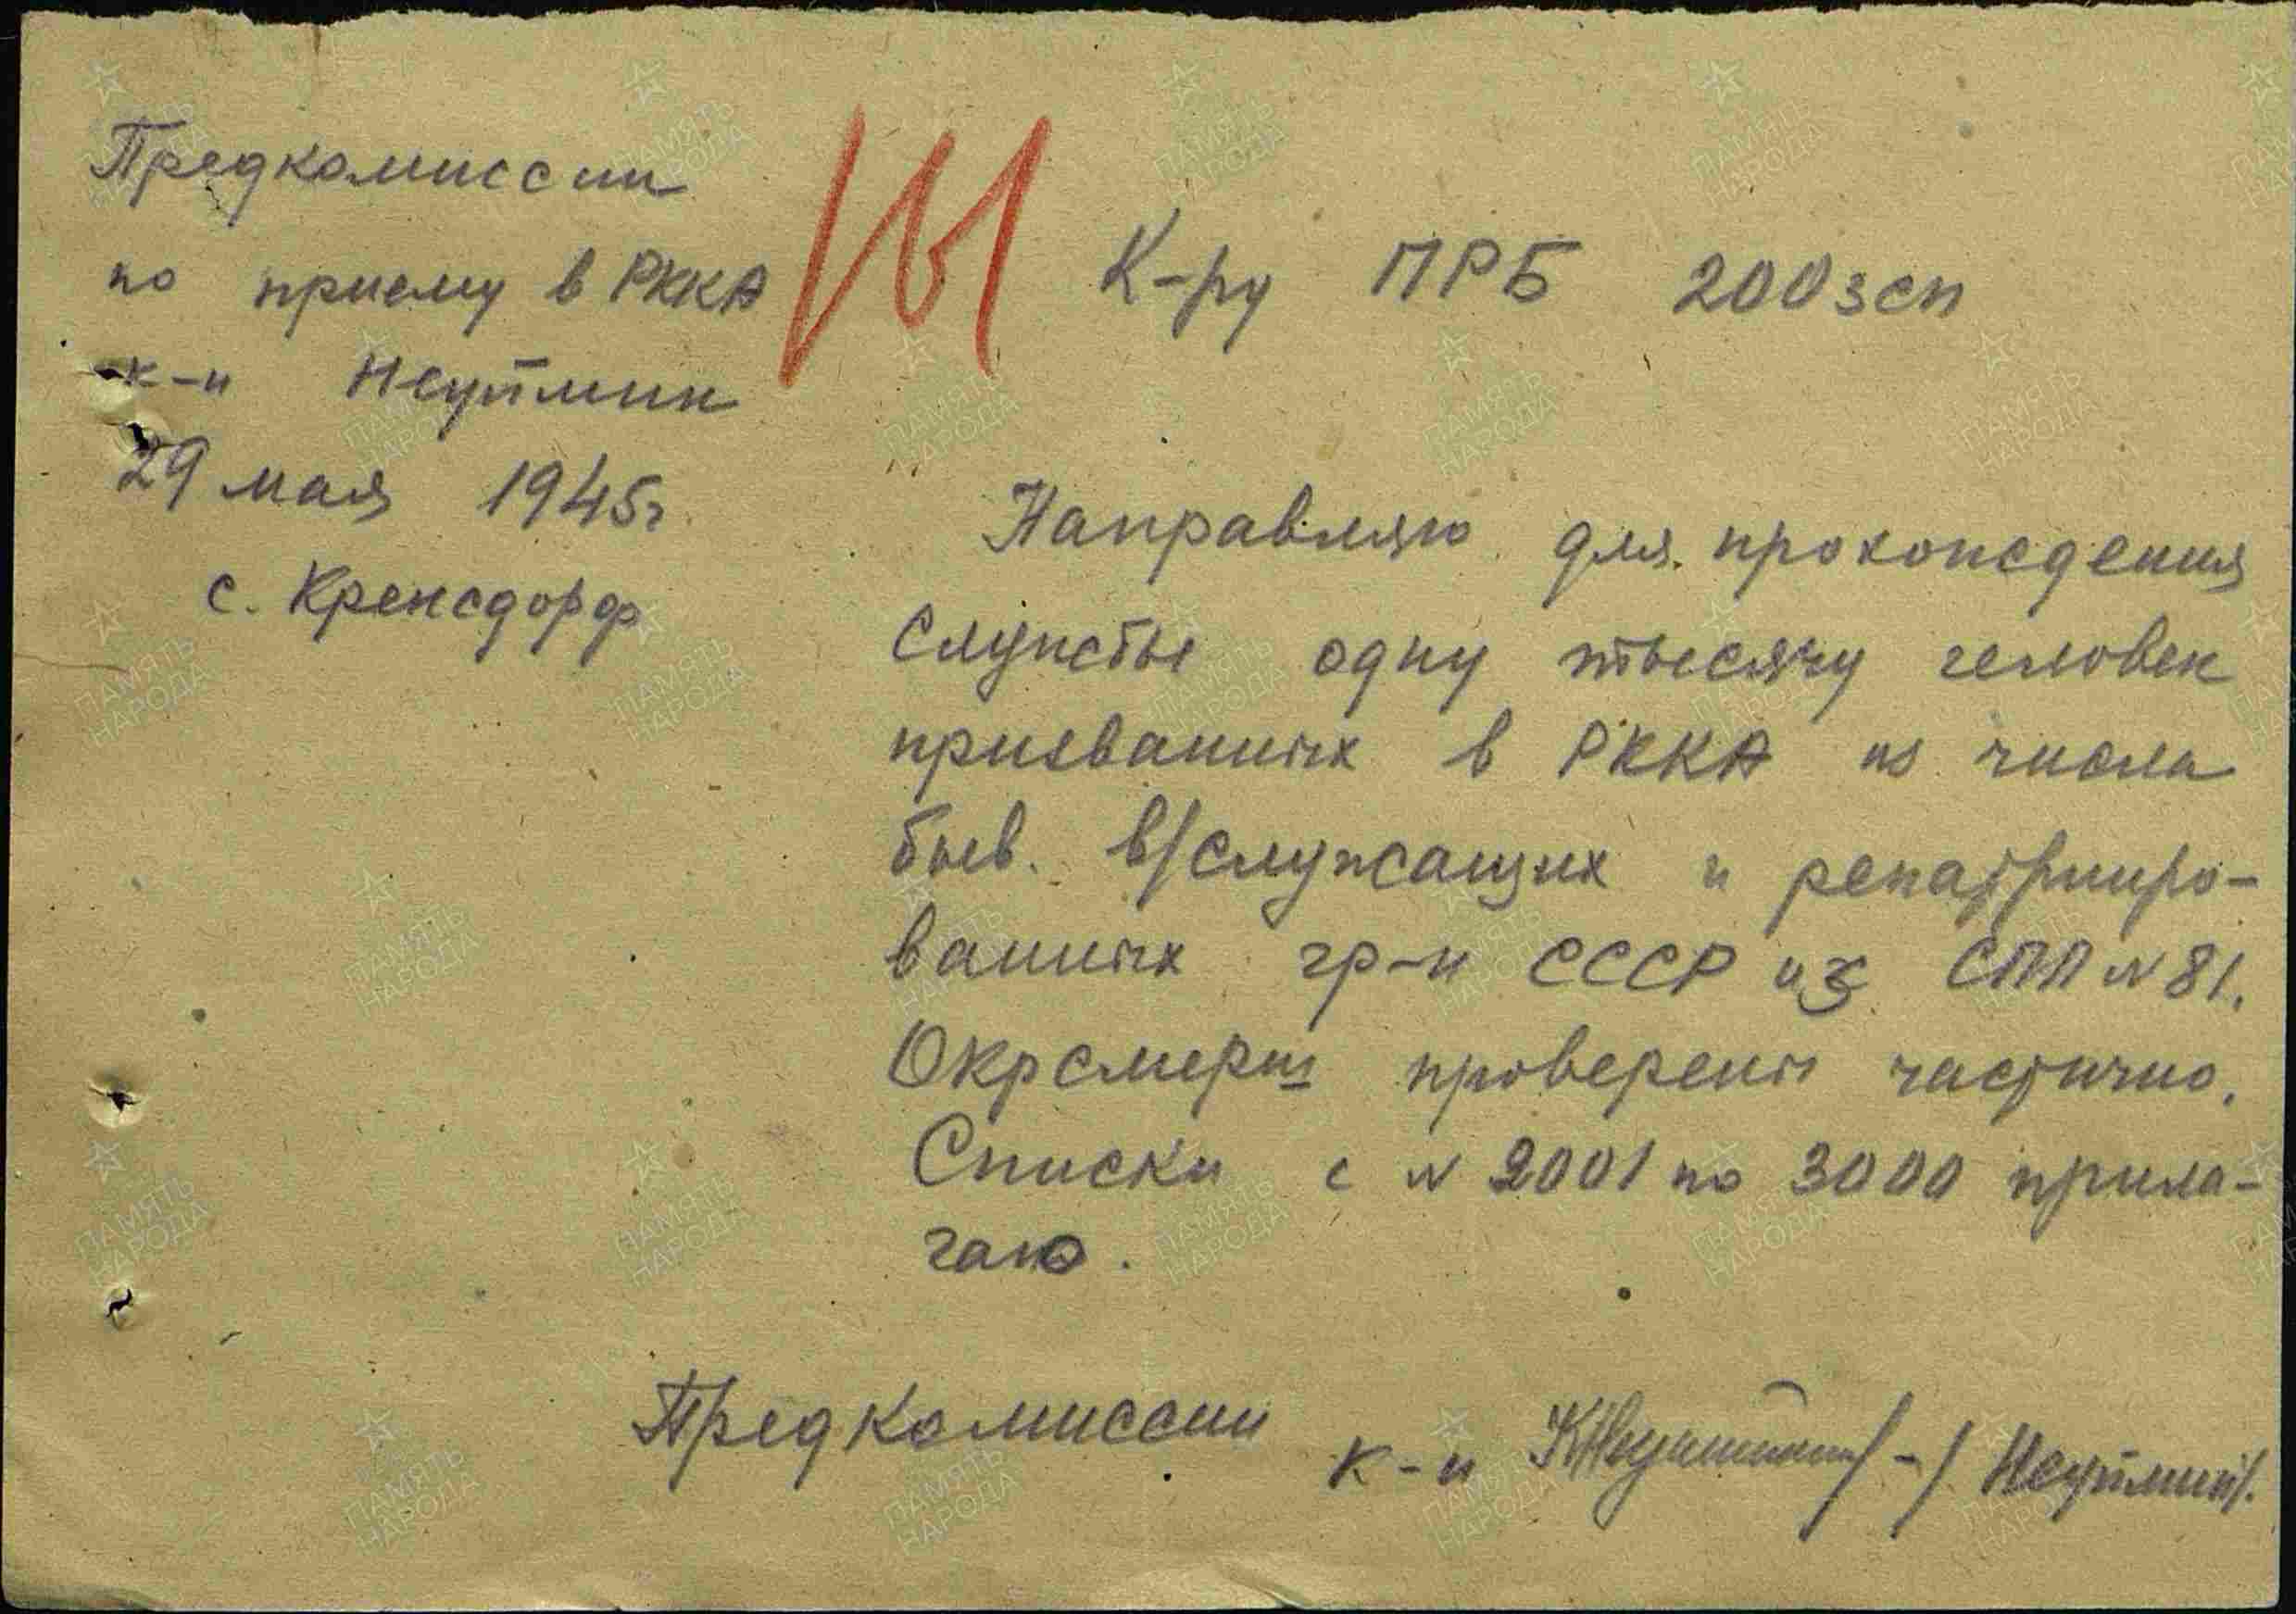 Предкомиссии
по приему в РККА
к-н Неуймин
29 мая 1945г
с. Кренсдорф
К-ру ПРБ 200зсп
Направляю для прохождения
службы одну тысячу человек
призванных в РККА из числа
быв. в/служащих и репатрииро-
ванных гр-н СССР из СПП №81.
Окрсмерш проверены частично.
Списки с № 2001 по 3000 прила-
гаю.
Предкомиссии
к-н /-/ Неуймин/.
ПАМЯТЬ
НАРОДА